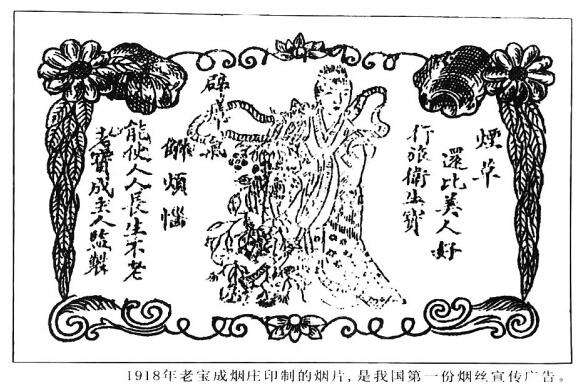 煙草
還比美人好
行旅衛生寶
辟氣
解煩惱
能使人人長生不老
老寶成主人監製
1918年老宝成烟庄印制的烟片，是我国第一份烟丝宣传广告。